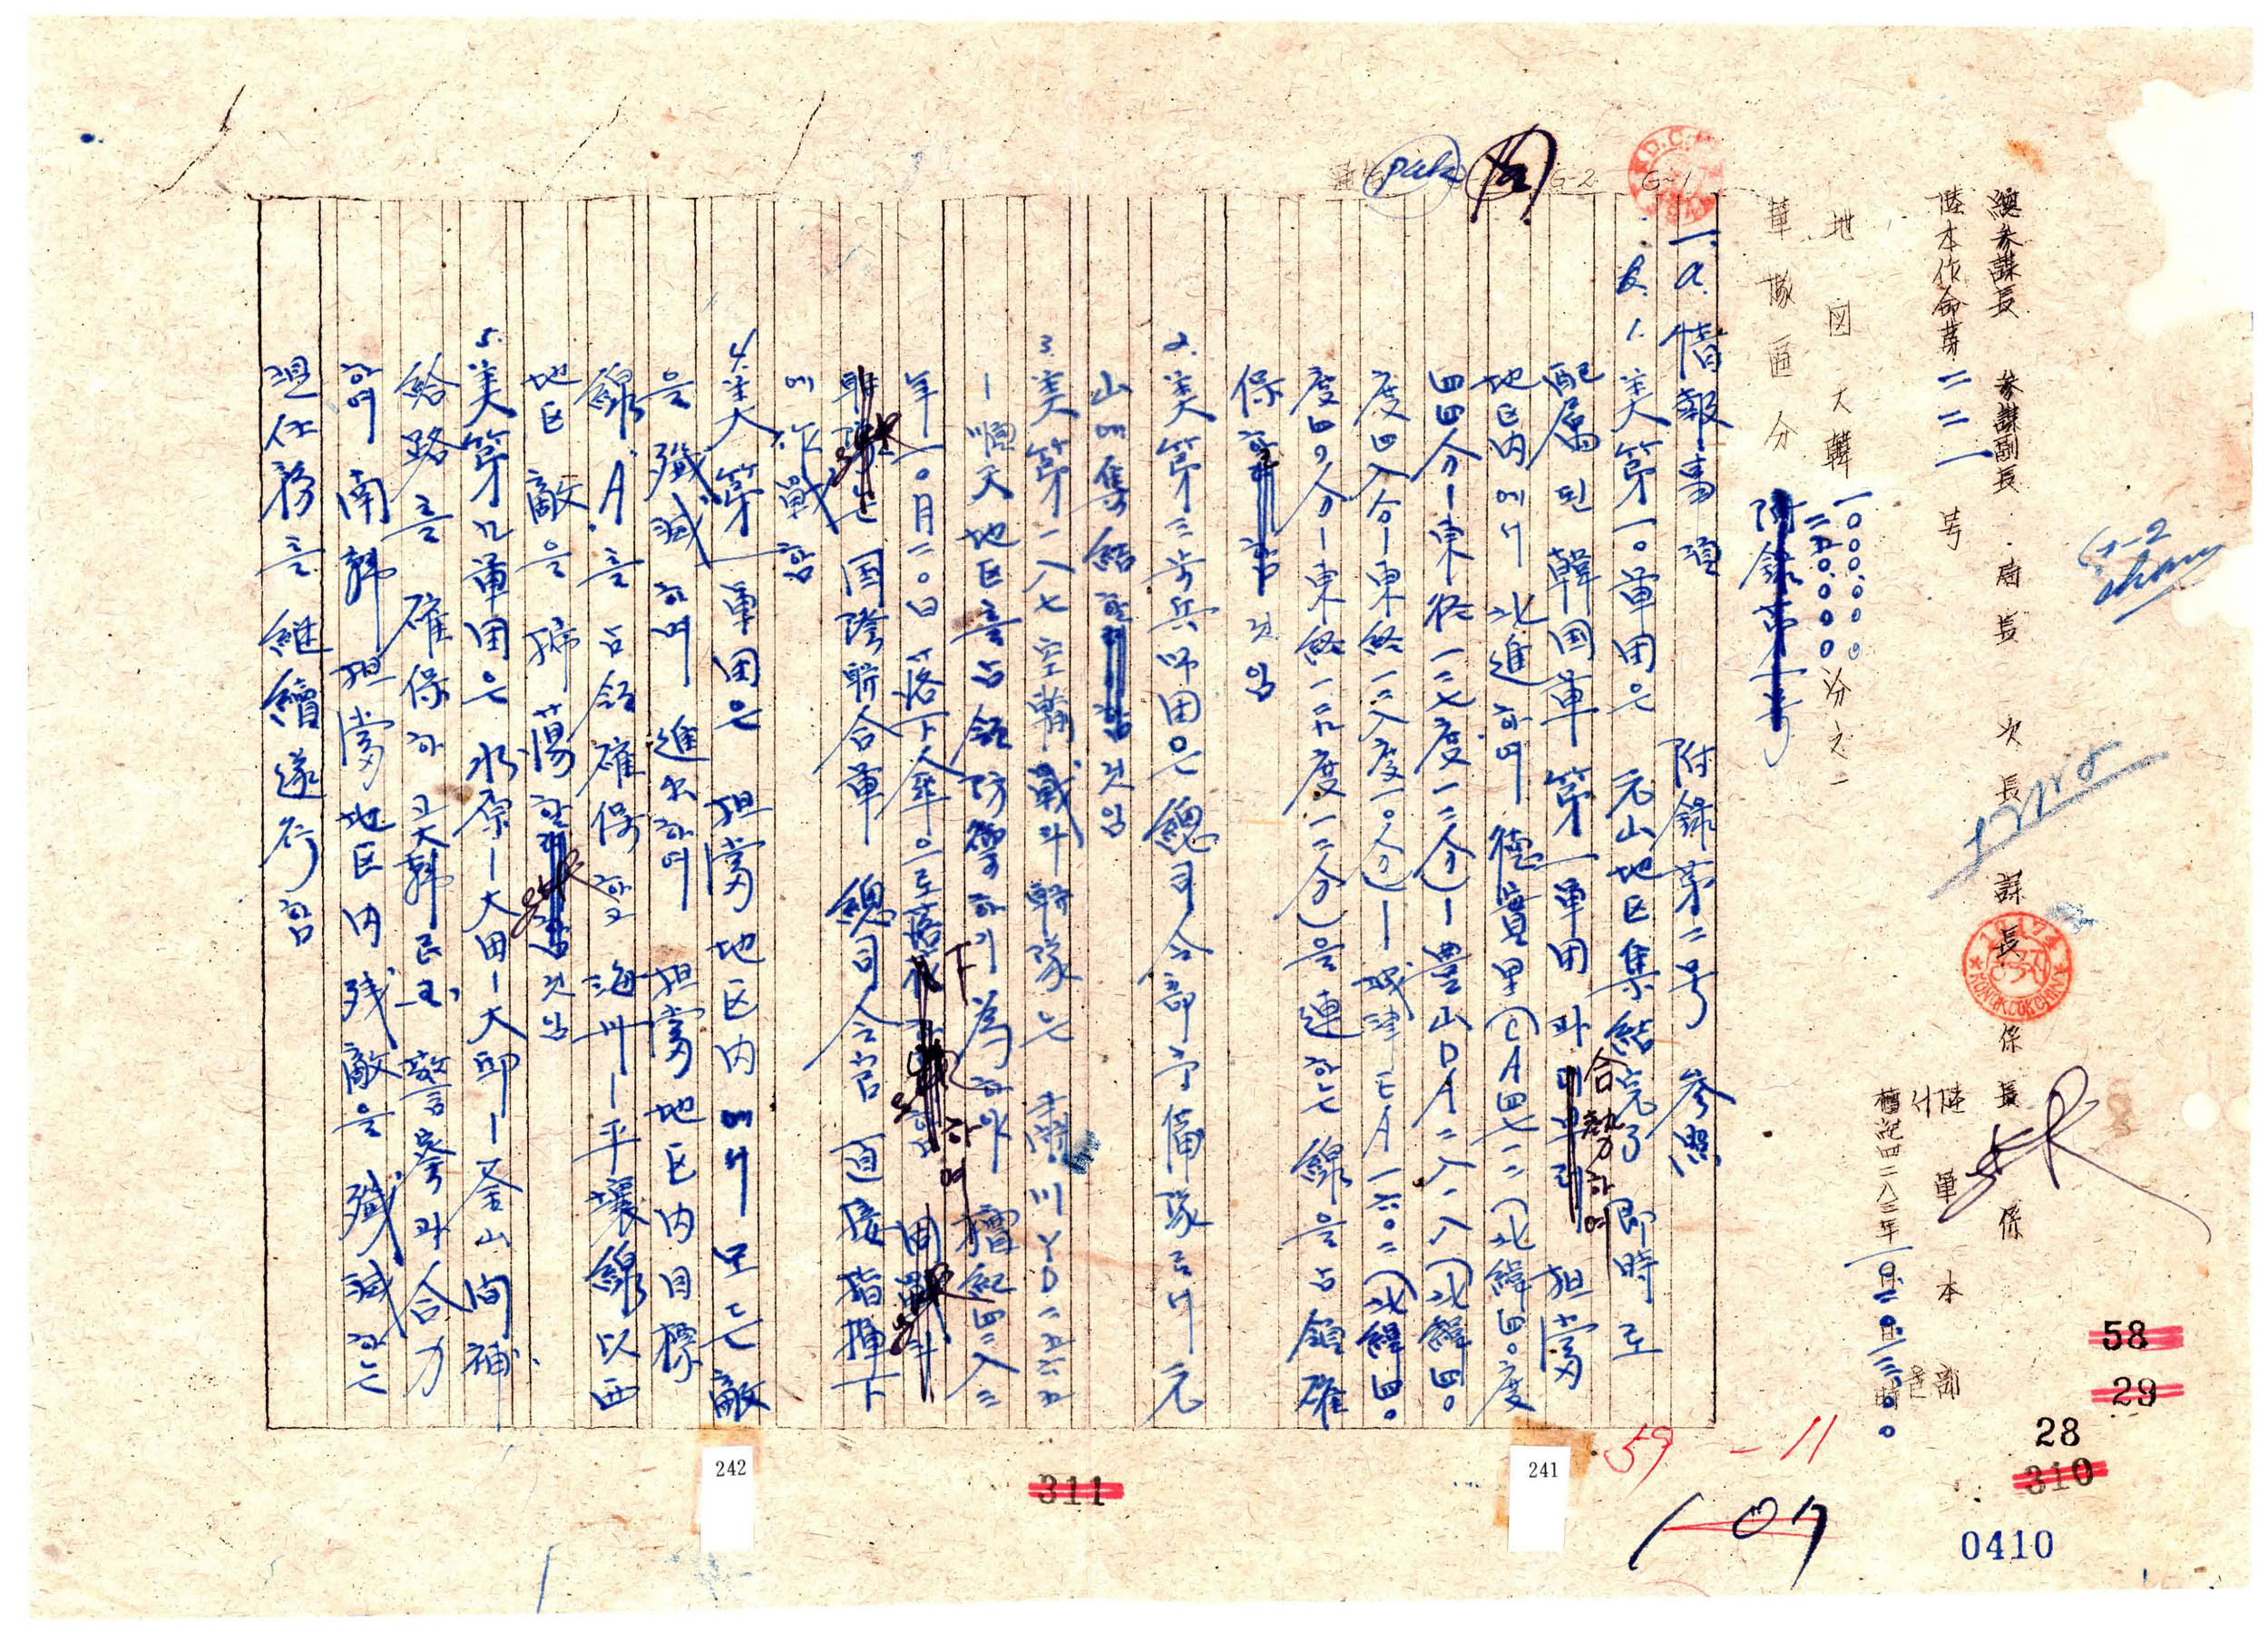 總參謀長 參謀副長 局長 次長 課長 係長 係
陸本作命第二二一号
陸軍本部
檀紀四二八三年一〇月二〇日二三〇〇時
地図 大韓 一〇〇〇.〇〇〇 二五〇.〇〇〇 分之一
軍隊區分
附錄第一号
G-1
G-2
pak
一. a. 情報事項 附錄第二号 參照
b. 1. 美第一〇軍団은 元山地区集結完了 即時로
配属된 韓国軍第一軍団과 合勢하여 担當
地区内에서 北進하여 德實里(CA四七一二(北緯四〇度
四四分ー東経一二七度一二分)ー豊山DA二八一八(北緯四〇
度四八分ー東経一二八度一〇分)ー城津EA一六〇二(北緯四〇
度四〇分ー東経一二九度一二分)을 連하는 線을 占領確
保할것임
2. 美第三步兵師団은 總司令部予備隊로서 元
山에 集結할것임
3. 美第一八七空輸戰斗聯隊는 肅川YD二五六五
ー順天地区를 占領防禦하기 爲하야 檀紀四二八三
年一〇月二〇日 落下傘으로 落下하여
国際聯合軍 總司令官 直接指揮下
에 作戰함
4. 美第一軍団은 担當地区内에서 모든 敵
을 殲滅하며 進出하여 担當地区内目標
線"A"를 占領確保하고 海州ー平壤線以西
地区 敵을 掃蕩할것임
5. 美第九軍団은 水原ー大田ー大邱ー釜山間補
給路를 確保하고 大韓民国 警察과 合力
하여 南韓担當地区内 残敵을 殲滅하는
現任務를 継續遂行함
G-2
58
29
28
310
311
241
242
59 - 11
107
0410